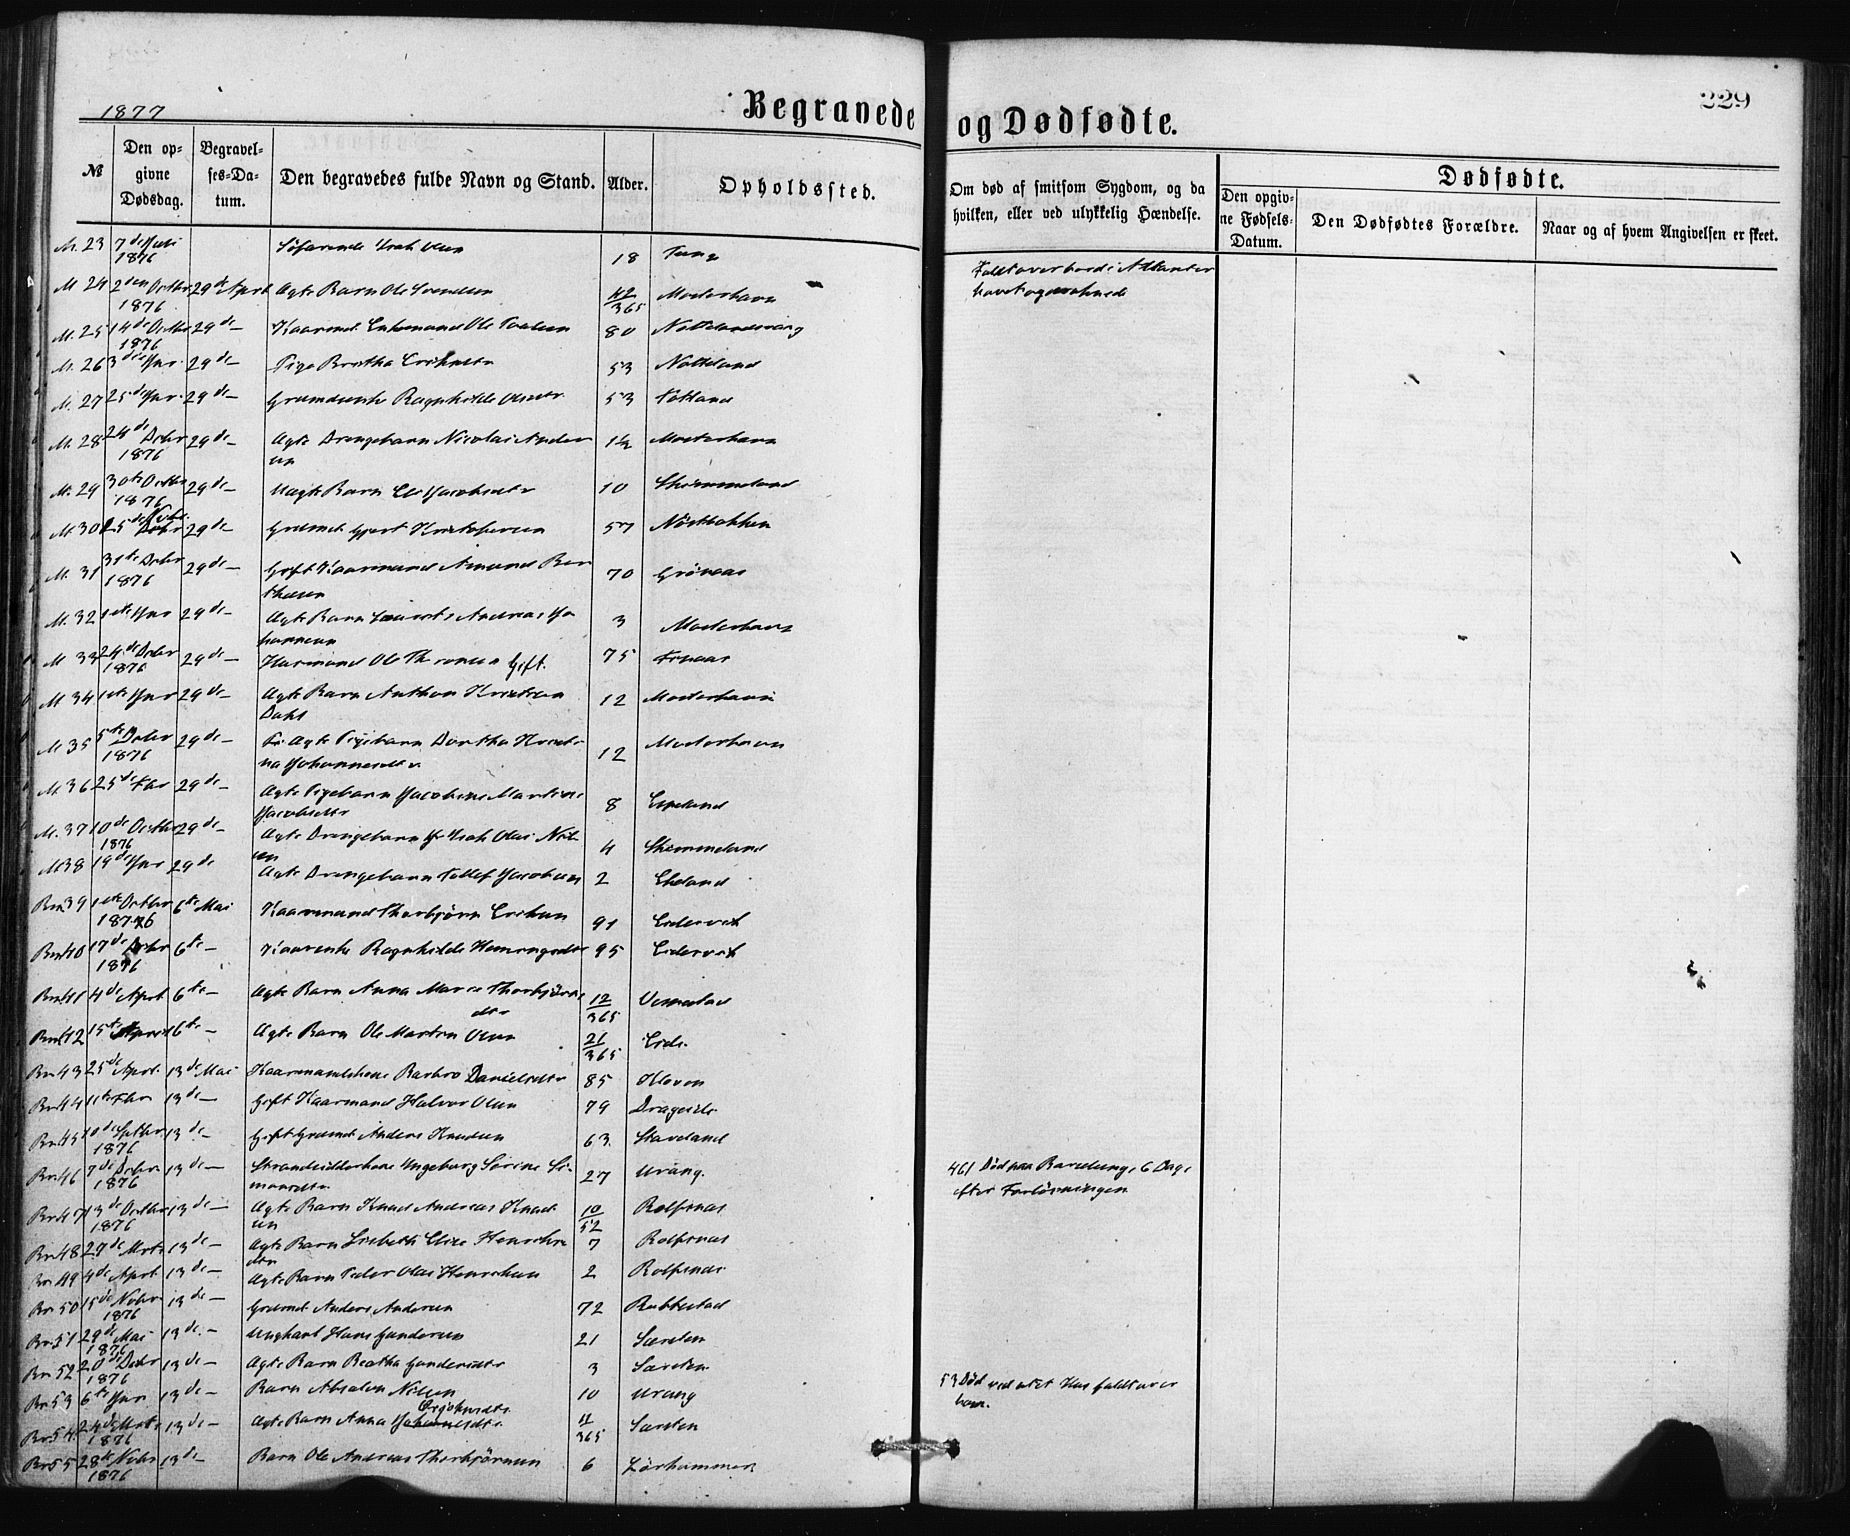 1877
Begravede og Dødfødte.
229
№
Den op-
givne
Dødsdag.
Begravel-
ses-Da-
tum.
Den begravedes fulde Navn og Stand.
Alder.
Opholdssted.
Om død af smitsom Sygdom, og da
hvilken, eller ved ulykkelig Hændelse.
Dødfødte.
Den opgiv-
ne Fødsels-
Datum.
Den Dødfødtes Forældre.
Naar og af hvem Angivelsen er skeet.
M. 23 7de Juli 1876 Isak Olsen 18 Tang
Faldt overbord i Atlanter
havet og
M 24 2den Octbr 1876 29de April Ægte Barn Ole Svendsen 42/365 Mosterhavn
M. 25 14de Octbr 1876 29de – Kaarmd. Enkemand Ole Poulsen 80
M. 26 3die Jnr 29de – Pige Brotha Eriksdtr 53 Notteland
M. 27 25de Jnr. 29de – Grdmdenke Ragnhilde Olsdtr 53 Totland
M. 28 24de Decbr 1876 29de – Ægte Drengebarn Nicolai Ander
sen 1½ Mosterhavn
M. 29 30te Octbr 1876 29de – Uægte Barn Jacobsdtr 10
M. 30 25de Novbr. 29de – Grdmd. Gjert Kristofersen 57 Nøstbakken
M. 31 31te Decbr 1876 29de – Gift Kaarmand Amund Ber
thesen 70 Grønaas
M. 32 1ste Jnr 29de – Ægte Barn Laurits Andreas Jo
hannesen 3 Mosterhavn
M 33 24de Decbr 1876 29de – Kaarmand Ole Gift. 75
M 34 1ste Jnr 29de – Ægte Barn Anthon Kristian
Dahl 12 Mosterhavn
M 35 5te Decbr 1876 29de – Ægte Pigebarn Dortha Kristi-
na Johannesdtr 12 Mosterhavn
M. 36 25de Fbr 29de – Ægte Pigebarn Jacobine Martine
Jacobsdtr 8 Espeland
M. 37 10de Octbr 1876 29de – Ægte Drengebarn Isak Olai Nil-
sen 4
M 38 19de Jnr 29de Ægte Drengebarn Tollef Jacobsen 2 Ekeland
Brm 39 1ste Octbr 1876 6te Mai Kaarmand Thorbjørn Eriksen 91 Eidesvik
Brm 40 17de Decbr 1876 6te – Kaarenke Ragnhilde Hemingsdtr 95 Eidesvik
Brm 41 4de April 6te – Ægte Barn Anna Marie Thorbjørns
dtr 12/365 Vespestad
Brm 42 15de April 6te – Ægte Barn Ole Martin Olsen 21/365 Eide
Brm 43 25de April 13de Mai Kaarmandskone Barbro Danielsdtr 85 Kloven
Brm 44 11te Fbr 13de – Gift Kaarmand Halvor Olsen 79 Drageide
Brm 45 10de Septbr 1876 13de – Gift Grdmd Anders Knudsen 63. Staveland
Brm 46 7de Decbr 1876 13de – Strandsidderkone Ingeborg Sørine Si-
monsdtr. 27 Urang.
46/ Død paa Barselseng, 6 Dage
efter Forløsningen
Brm 47 13de Octbr 1876 13de – Ægte Barn Knud Andreas Knud
sen 10/52 Rolfsnæs
Brm 48 27de Mrts 13de – Ægte Barn Lisbeth Elise Henriks
dtr 7 Rolfsnæs
Brm 49 4de April 13de – Ægte Barn Peder Olai Henriksen 2 Rolfsnæs
Brm 50 15de Novbr 1876 13de – Grdmd Anders Andersen 72 Rubbestad
Brm 51 29de Mai 1876 13de – Ungkarl Hans Gundersen 21 Særsten
Brm 52 20de Decbr 1876 13de – Ægte Barn Beatha Gundersdtr 3 Særsten
Brm 53 6te Jnr 13de – Barn Absalon Nilsen 10 Urang
53 Død ved at et Hus faldt over
ham.
Brm 54 24de Mrts 1876 13de – Ægte Barn Anna Johannesdtr 4/365 Særsten
Brm 55 28de Novbr 1876 13de – Barn Ole Andreas Thorbjørnsen 6 Lørhammer